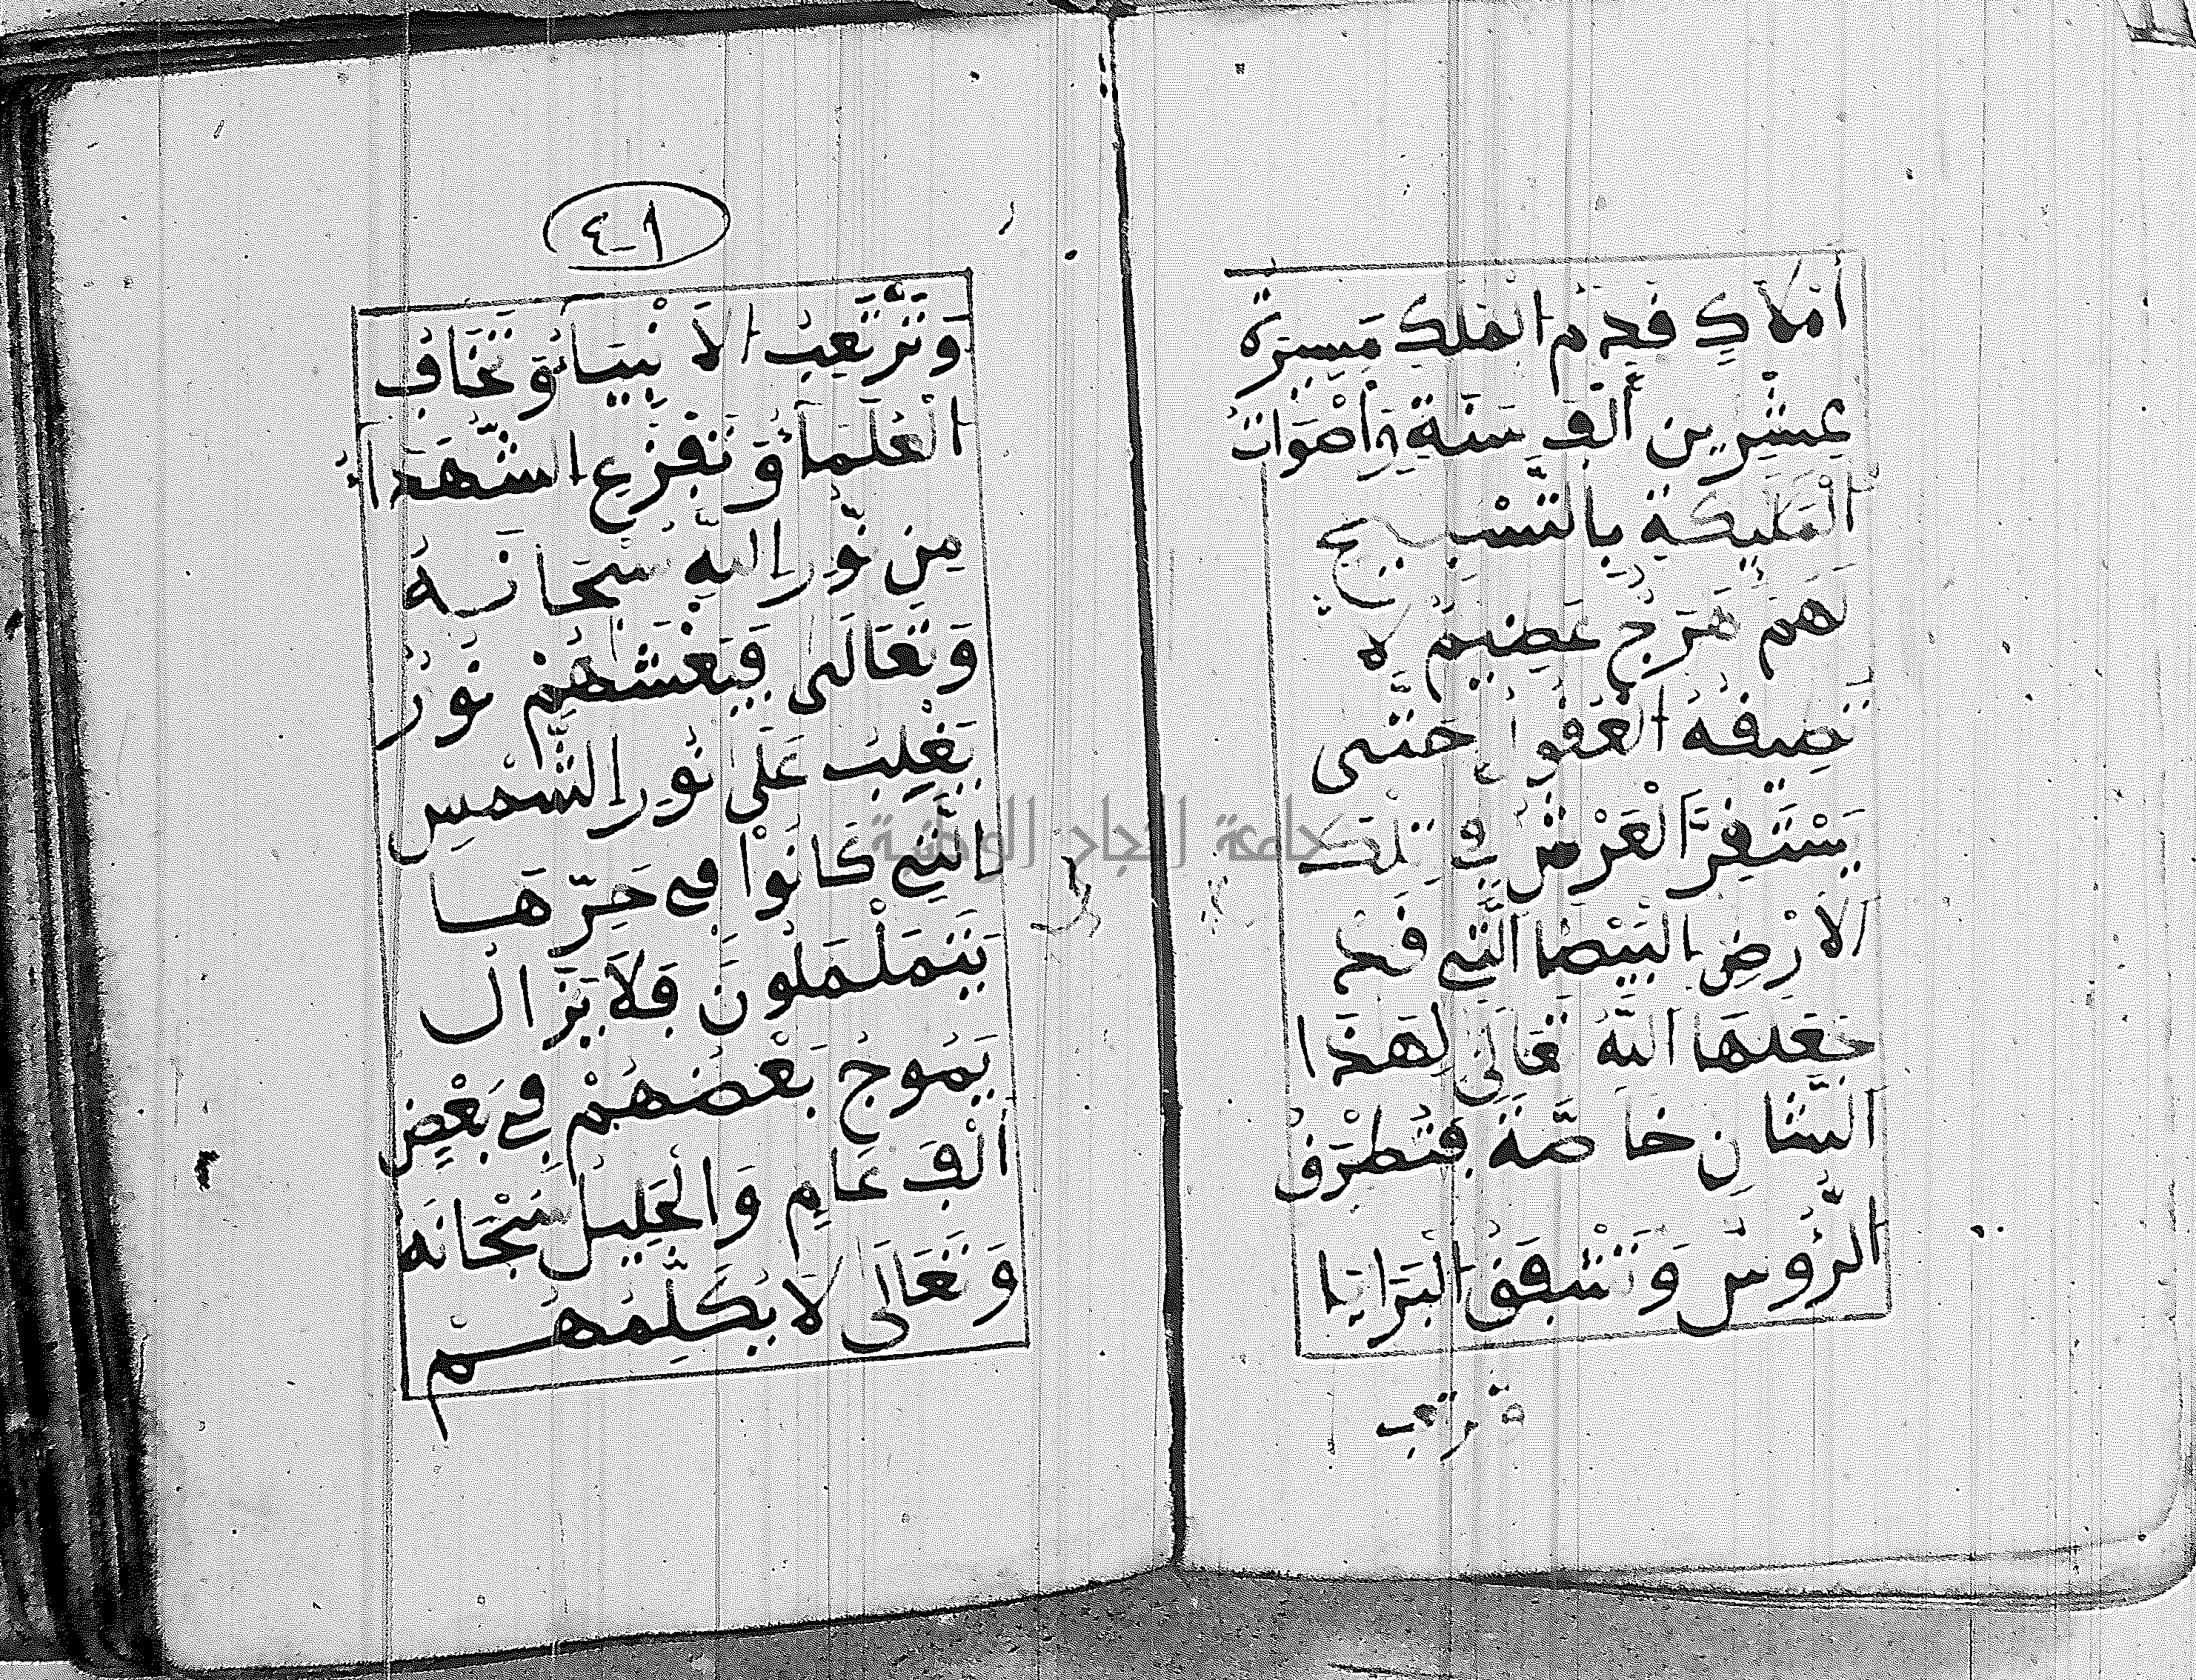 أَمْلَاكٍ قَدَمُ الْمَلَكِ مَسِيرَة
عِشْرِينَ أَلْفَ سَنَةٍ وَأَصْوَاتُ
الْمَلَيِكَةِ بِالتَّسْبِيحِ
لَهُمْ هَرَجٌ عَضِيمٌ لَا
تَصِيفُهُ الْعُقُولُ حَتَّى
يَسْتَقِرَّ الْعَرْشُ فِي تِلْكَ
الْأَرْضِ الْبَيْضَا الَّتِي قَدْ
جَعَلَهَا اللَّهُ تَعَالَى لِهَذَا
الشَّانِ خَاصَّةً فَتُطْرَقُ
الرُّؤُوسُ وَتُشْفِقُ الْبَرَايَا
وترتعب
١-٤
وَتَرْتَعِبُ الْأَنْبِيَاءُ وَتَخَافُ
الْعُلَمَاءُ وَتَفْزَعُ الشُّهَدَاءُ
مِنْ نُورِ اللَّهِ سُبْحَانَهُ
وَتَعَالَى فَيَغْشَاهُمْ نُورٌ
يَغْلِبُ عَلَى نُورِ الشَّمْسِ
الَّتِي كَانُوا فِي حَرِّهَا
يَتَمَلْمَلُونَ فَلَا يَزَالُ
يَمُوجُ بَعْضُهُمْ فِي بَعْضٍ
أَلْفَ عَامٍ وَالْجَلِيلُ سُبْحَانَهُ
وَتَعَالَى لَا يُكَلِّمُهُمْ
جامعة النجاح الوطنية